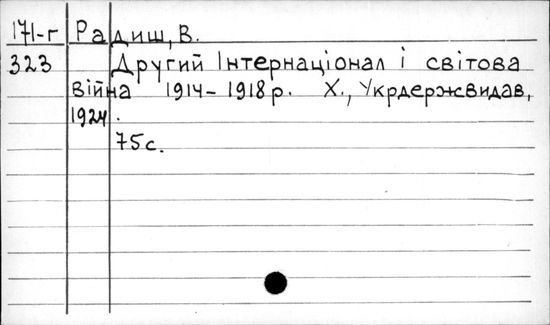 171-г Радиш, В.
323 Другий Інтернаціонал і світова
війна 1914-1918 р. Х., Укрдержвидав,
1924.
75 с.